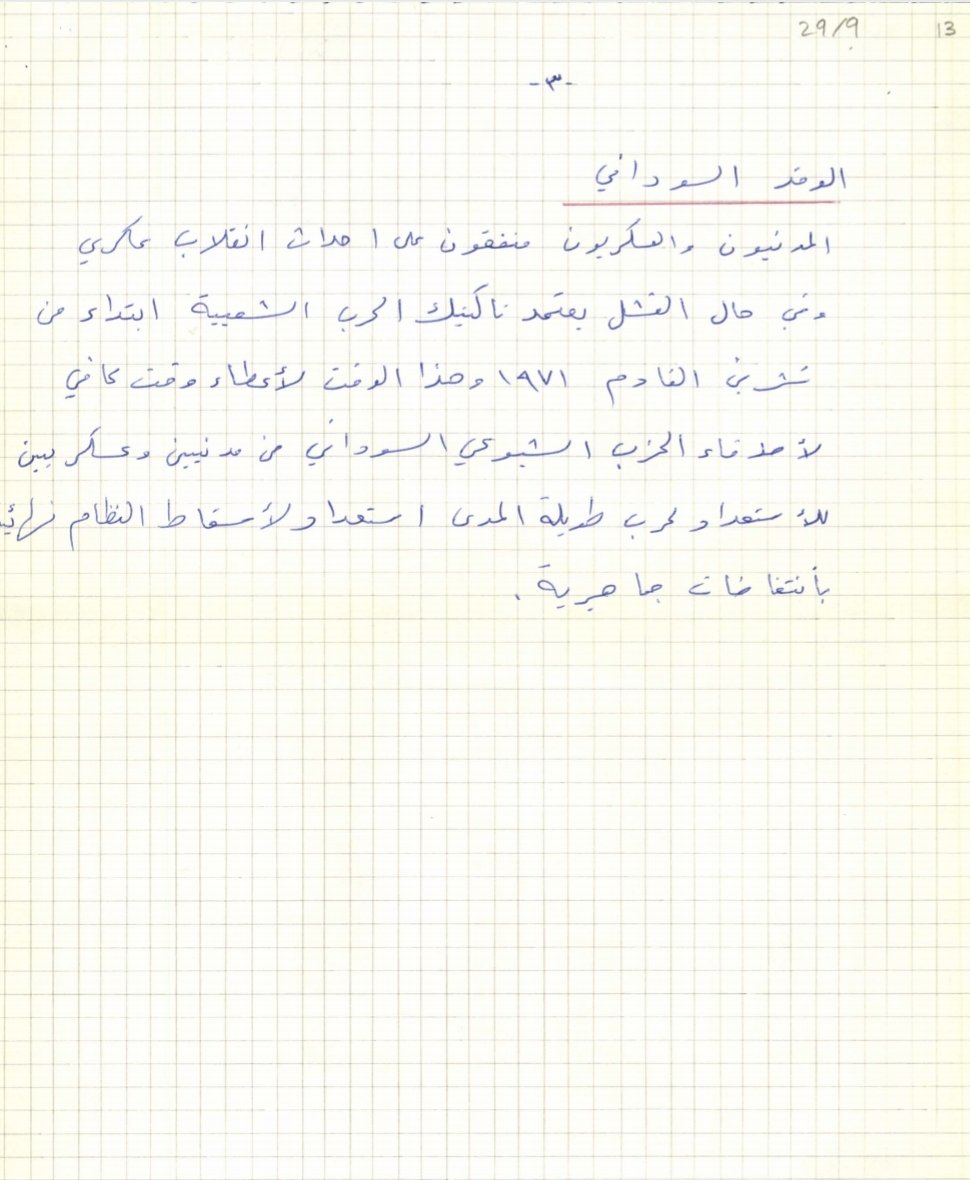 29/9 13
-٣-
الوفد السوداني
المدنيون والعسكريون متفقون على احداث انقلاب عسكري
وفي حال الفشل يعتمد تاكتيك الحرب الشعبية ابتداء من
تشرين القادم ١٩٧١ وهذا الوقت لأعطاء وقت كافي
لأصدقاء الحزب الشيوعي السوداني من مدنيين وعسكريين
للأستعداد لحرب طويلة المدى استعداد لأسقاط النظام نهائيا
بأنتفاضات جماهيرية .